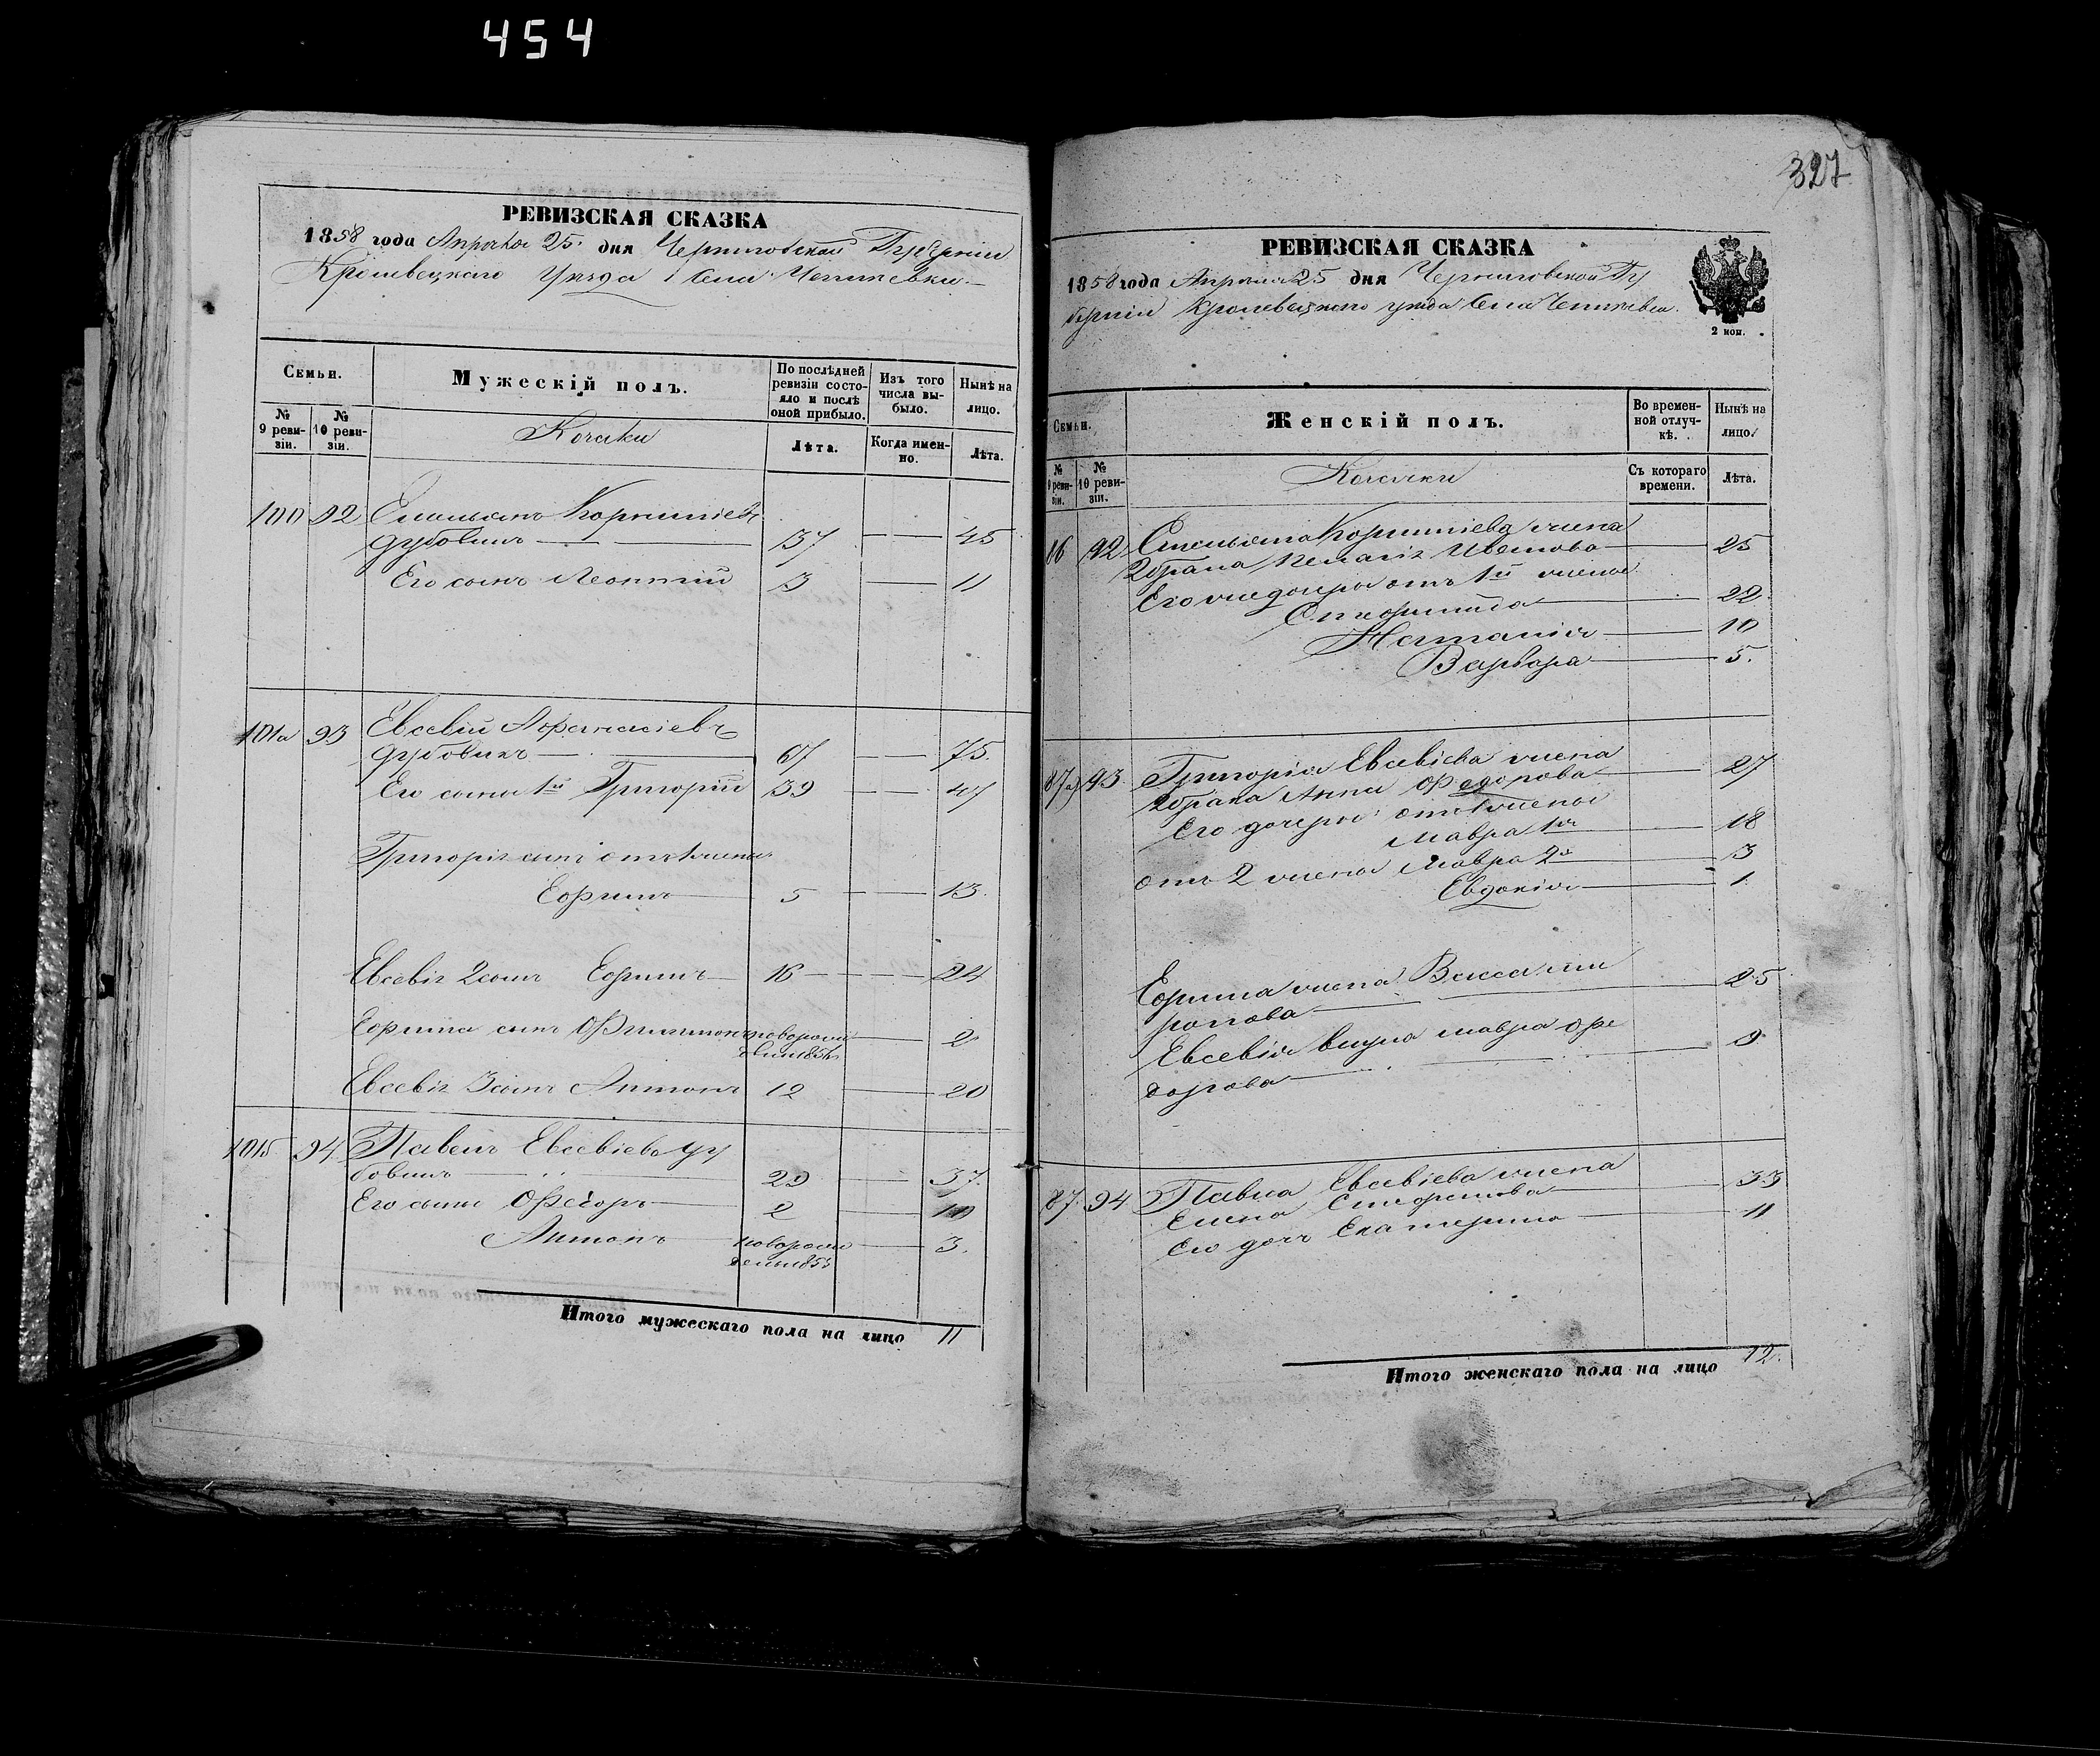 454
РЕВИЗСКАЯ СКАЗКА
1858 года Апреля 25 дня Черниговской Губерніи
Кролевецкаго Уезда Села Чепиевки
Семьи.
Мужескій полъ.
По послѣдней ревизіи состояло и послѣ оной прибыло.
Изъ того числа выбыло.
Нынѣ на лицо.
№ 9 ревизіи.
№ 10 ревизіи.
Козаки
Лѣта.
Когда именно.
Лѣта.
100 92 Емельянъ Корниліевъ
Дубовикъ 37 45
Его сынъ Леонтій 3 11
101а 93 Евсевій Афанасіевъ
Дубовикъ 67 75.
Его сыны 1й Григорій 39 47
Григорія сынъ отъ 1 жены
Ефимъ 5 13.
Евсевія 2 сынъ Ефимъ 16 24
Ефима сынъ Филимонъ 2
Евсевія 3 сынъ Антонъ 12 20
101б 94 Павелъ Евсевіевъ Ду
бовикъ 29 37.
Его сыны Федоръ 2 10
Антонъ новорожденный 1855 3.
Итого мужескаго пола на лицо 11
327
РЕВИЗСКАЯ СКАЗКА
1858 года Апреля 25 дня Черниговской Гу
берніи Кролевецкаго уезда Села Чепиевки.
2 коп.
Семьи.
Женскій полъ.
Во временной отлучкѣ.
Нынѣ на лицо.
№ 9 ревизіи.
№ 10 ревизіи.
Козачки
Съ котораго времени.
Лѣта.
92 Емельяна Корниліева жена
2 брака Пелагія 25
Его же дочеры отъ 1й жены
22
Наталія 10
Варвара 5.
87а) 93. Григорія Евсевіева жена
2 брака Анна Федорова 27
Его дочеры отъ 1 жены
Мавра 1я 18
отъ 2 жены Мавра 2я 3
Евдокія 1.
Ефима жена 25
Евсевія внука Мавра Фе
дорова 9
87. 94 Павла Евсевіева жена
Елена 33
Его дочь Екатерина 11
Итого женскаго пола на лицо 12.